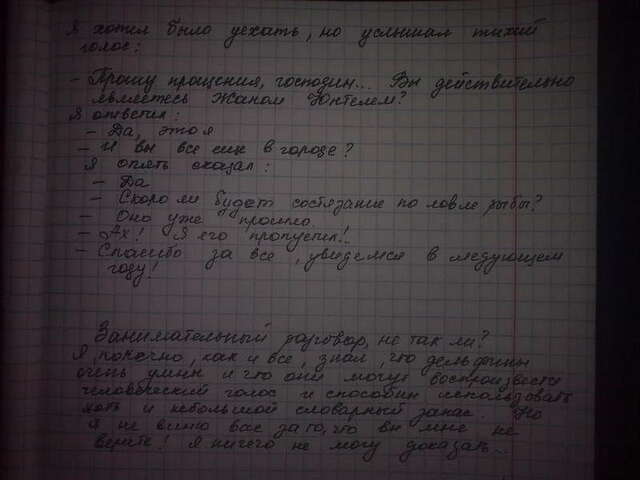 Я хотел было уехать, но услышал тихий
голос:
- Прошу прощения, господин... Вы действительно
являетесь Жаном Юнтелем?
Я ответил:
- Да, это я
- И вы все еще в городе?
Я опять сказал:
- Да
- Скоро ли будет состязание по ловле рыбы?
- Оно уже прошло.
- Ах! Я его пропустил!..
- Спасибо за все, увидемся в следующем
году!
Занимательный разговор, не так ли?
Я, конечно, как и все, знал, что дельфины
очень умны и что они могут воспроизвести
человеческий голос и способны использовать
хотя и небольшой словарный запас. Но
я не виню вас за то, что вы мне не
верите! Я ничего не могу доказать...